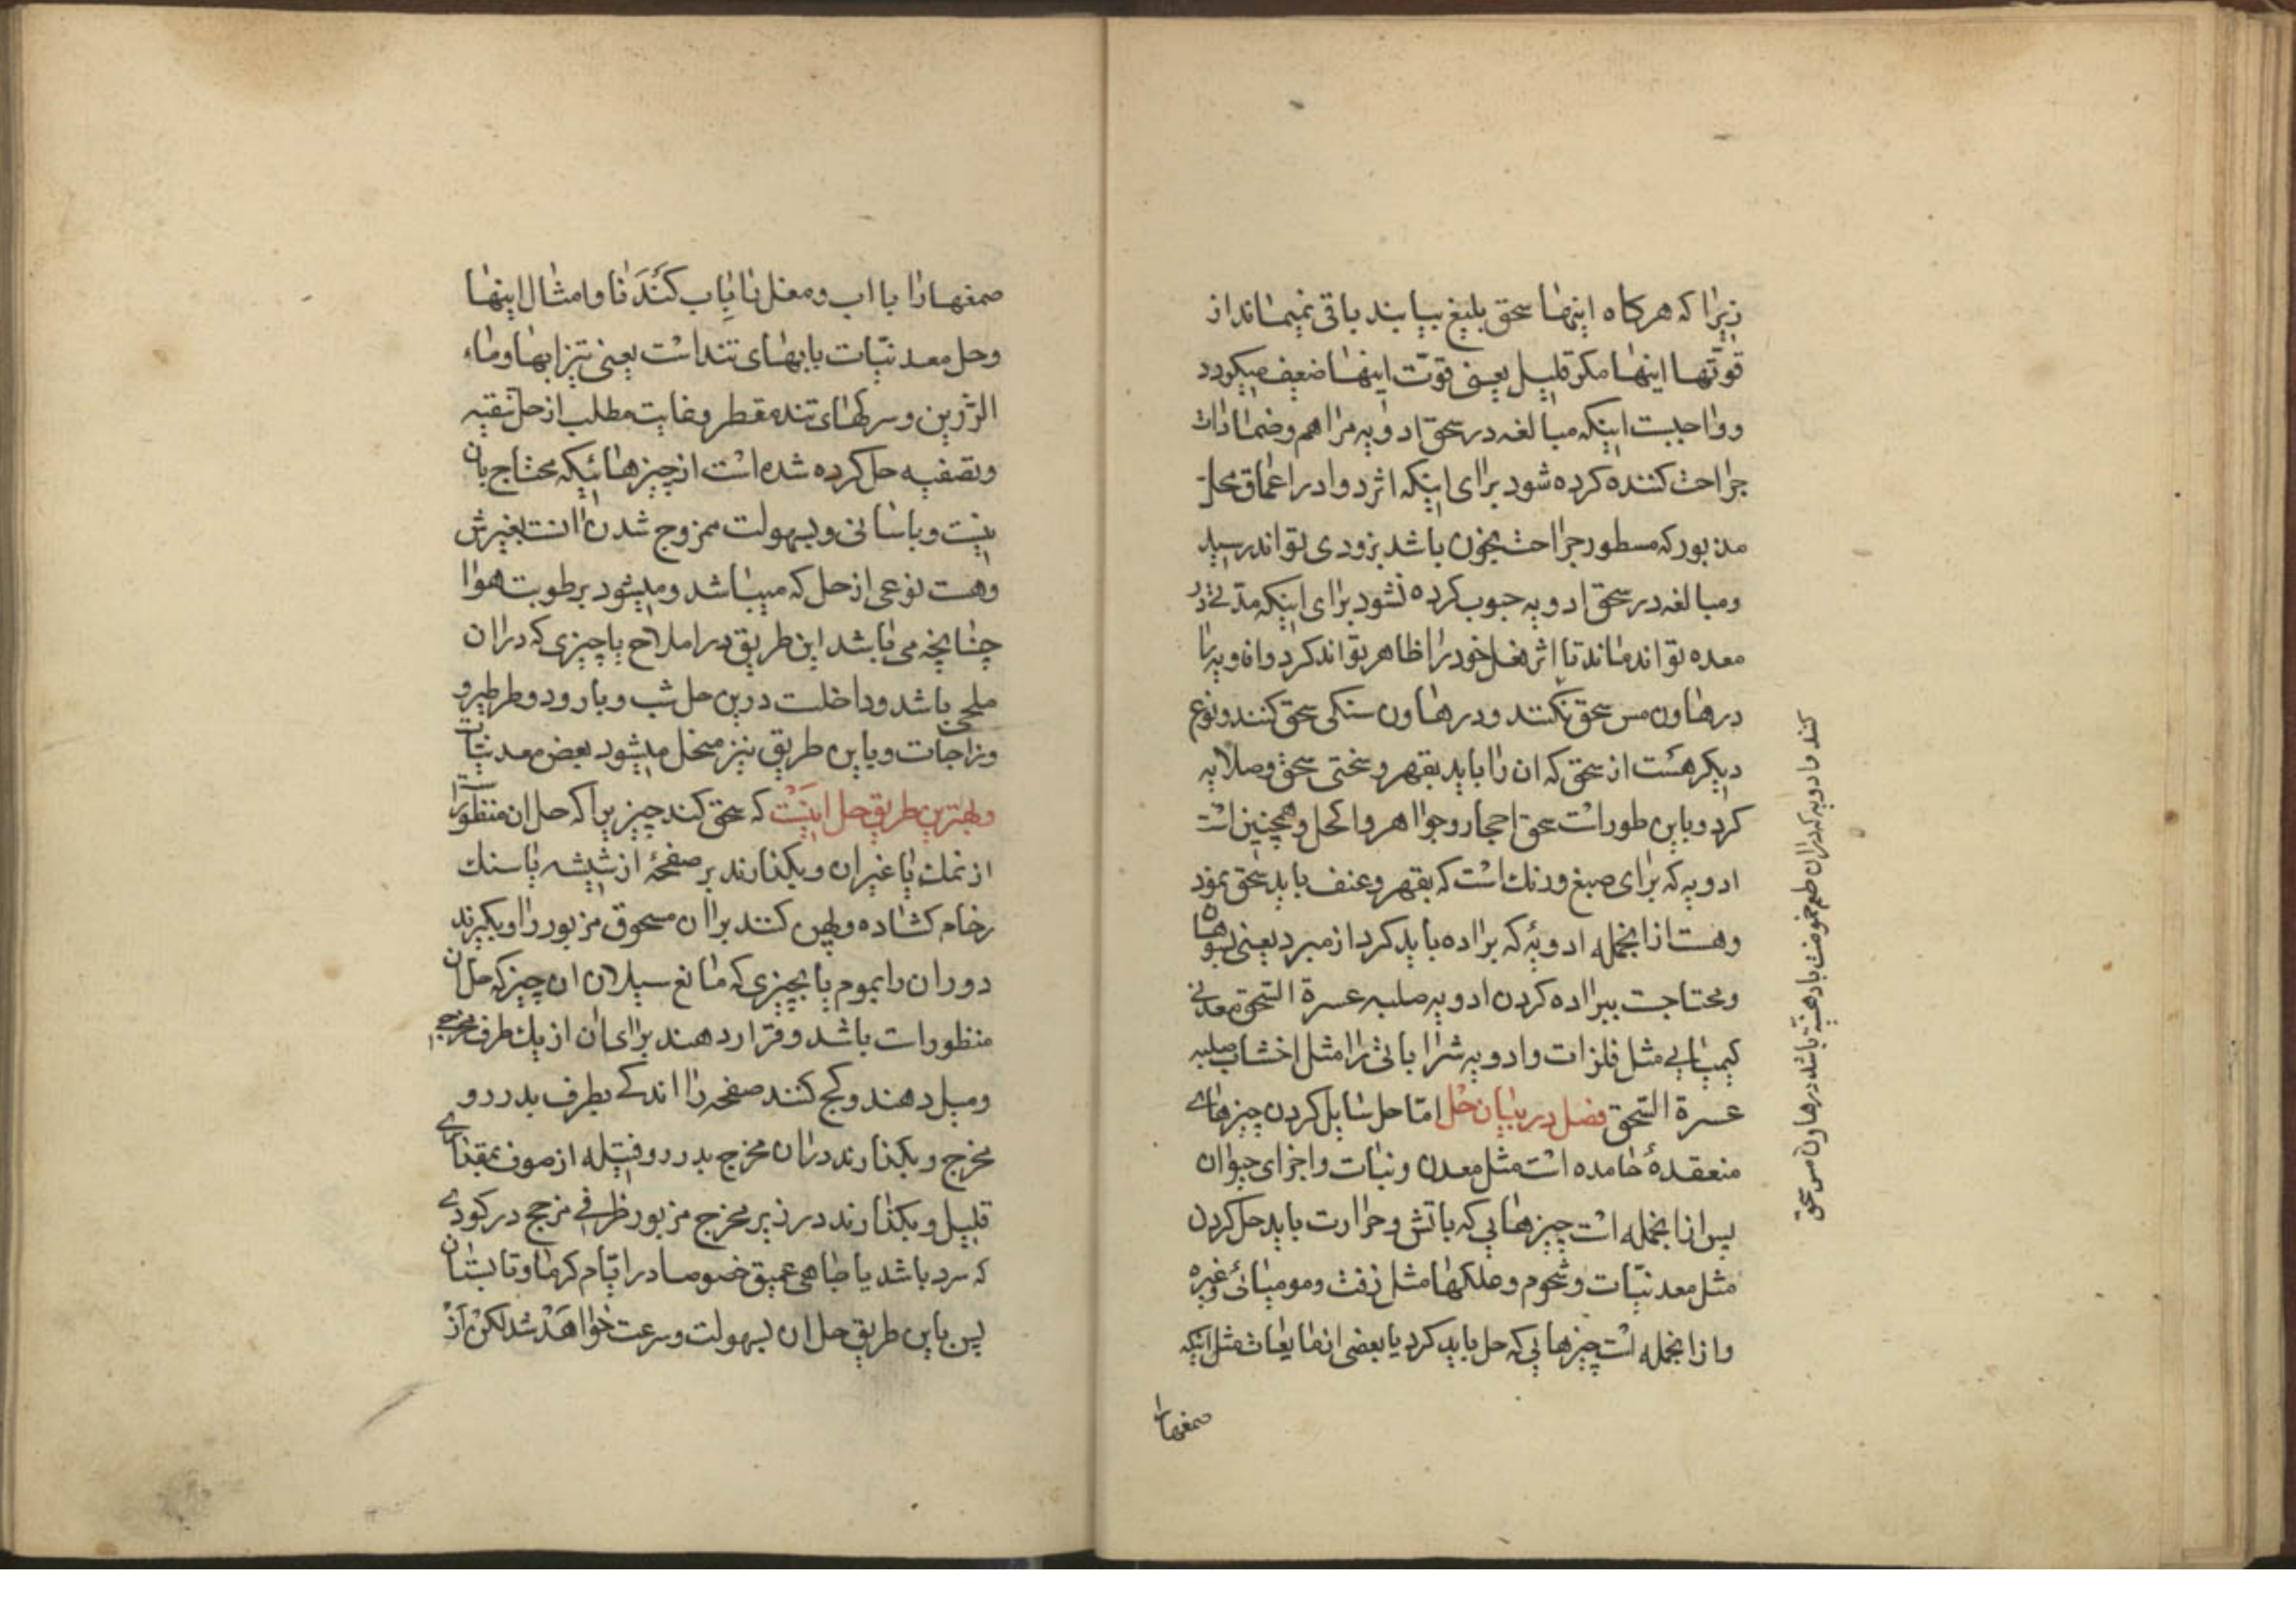 زیرا که هرکاه اینها سحق بلیغ بیابند باقی نمیماند از
قوتها اینها مکر قلیل یعنی قوّت اینها ضعیف میکردد
و واجبست اینکه مبالغه در سحق ادویه مراهم و ضمادات
جراحت کننده کرده شود برای اینکه اثر دوا در اعماق محل
مذبور که مسطور جراحت بخون باشد بزودی تواند رسید
و مبالغه در سحق ادویه جبوب کرده نشود برای اینکه مدّتی در
معده تواند ماند تا اثر فعل خود را ظاهر تواند کرد و ادویه را
در هاون مس سحق نکنند و در هاون سنکی سحق کنند و نوع
دیکر هست از سحق که ان را باید بقهر و سختی سحق و صلایه
کرد و باین طور است سحق احجار و جواهر و اکحل و همچنین است
ادویه که برای صبغ و رنك است که بقهر و عنف باید سحق نمود
و هست از انجمله ادویهٔ که براده باید کرد از مبرد یعنی سوها
و محتاجست ببراده کردن ادویه صلبه عسرة السّحق معدنی
کیمیایی مثل فلزات و ادویه شرا باتی را مثل اخشاب صلبه
عسرة السّحق فصل در بیان حل امّا حل سایل کردن چیزهای
منعقدهٔ جامده است مثل معدن و نبات و اجزای حیوان
پس از انجمله است چیزهایی که باتش و حرارت باید حل کردن
مثل معدنیّات و شحوم و علکها مثل زفت و مومیائی و غیره
و از انجمله است چیزهایی که حل باید کرد یا بعضی از مایعات مثل اینکه
صمغها
کنند و ادویه که در ان طعم حموضت یا دهنیّة باشد در هاون مس سحق
صمغها را با اب و مغل را باب کَنَدنا و امثال اینها
و حل معدنیّات بابهای تند است یعنی تیزابها و ماء
الرّزین و سرکهای تند مقطر و غایت مطلب از حل تنقیه
و تصفیه حل کرده شده است از چیزهائیکه محتاج بان
نیست و باسانی و بسهولت ممزوج شدن انست بغیرش
و هست نوعی از حل که میباشد و میشود برطوبت هوا
چنانچه می باشد این طریق در املاح یا چیزی که در ان
ملحی باشد و داخلست درین حل شب و بارود و طرطیر و
و زاجات و باین طریق نیز منحل میشود بعض معدنیّات
و بهترین طریق حل اینست که سحق کند چیزیرا که حل ان منظور
از نمك یا غیر ان و بکذارند بر صفحهٔ از شیشه یا سنك
رخام کشاده و پهن کنند بر ان مسحوق مزبور را و بکیرند
دوران را بموم یا بچیزی که مانع سیلان ان چیز که حل ان
منظورات باشد و قرار دهند برای ان از یك طرف مخرجی
و میل دهند و کج کنند صفحه را اندکی بطرف بدررو
مخرج و بکذارند در ان مخرج بدررو فتیله از صوف بمقداری
قلیل و بکذارند در زیر مخرج مزبور ظرفی مزجج در کودی
که سرد باشد یا چاهی عمیق خصوصا در ایّام کرما و تابستان
پس باین طریق حل ان بسهولت و سرعت خواهد شد لکن از